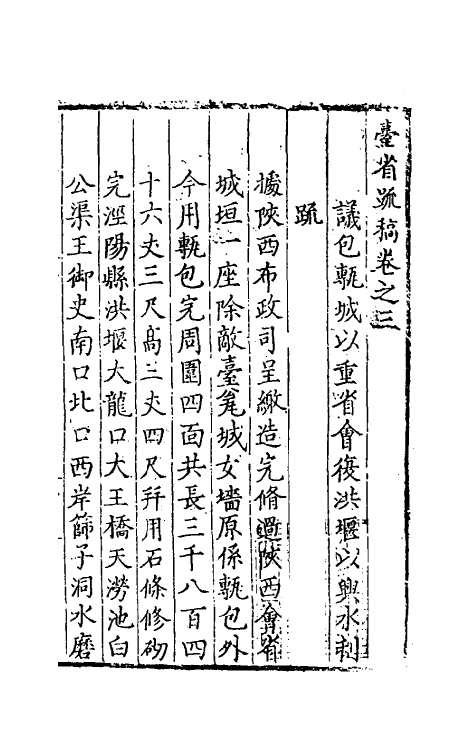 臺省疏稿卷之三
議包甎城以重省會復洪堰以興水利
疏
據陝西布政司呈繳造完脩過陝西會省
城垣一座除敵臺瓮城女墻原係甎包外
今用甎包完周圍四面共長三千八百四
十六丈三尺高三丈四尺幷用石條修砌
完涇陽縣洪堰大龍口大王橋天澇池白
公渠王御史南口北口西岸篩子洞水磨